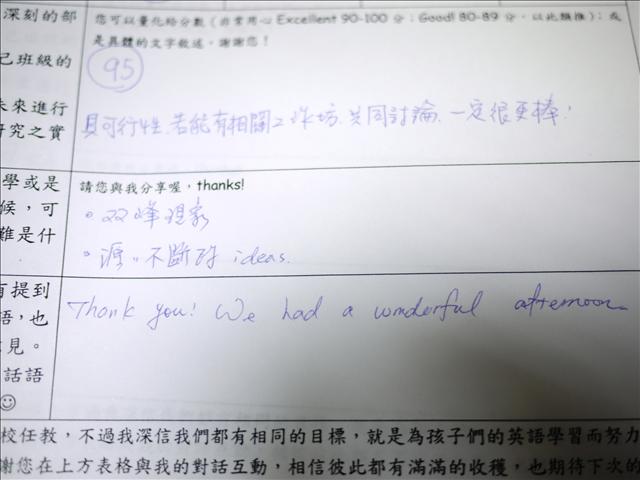 深刻的部
您可以量化給分數(非常用心 Excellent 90-100 分;Good! 80-89 分,以此類推);或
是具體的文字敘述,謝謝您!
己班級的
95
未來進行
研究之實
具可行性,若能有相關工作坊,共同討論,一定很更棒!
學或是
請您與我分享喔,thanks!
候,可
難是什
。双峰現象
。源源不斷的 ideas.
有提到
語,也
Thank you! We had a wonderful afternoon
見。
話語
☺
校任教,不過我深信我們都有相同的目標,就是為孩子們的英語學習而努力
謝您在上方表格與我的對話互動,相信彼此都有滿滿的收穫,也期待下次的